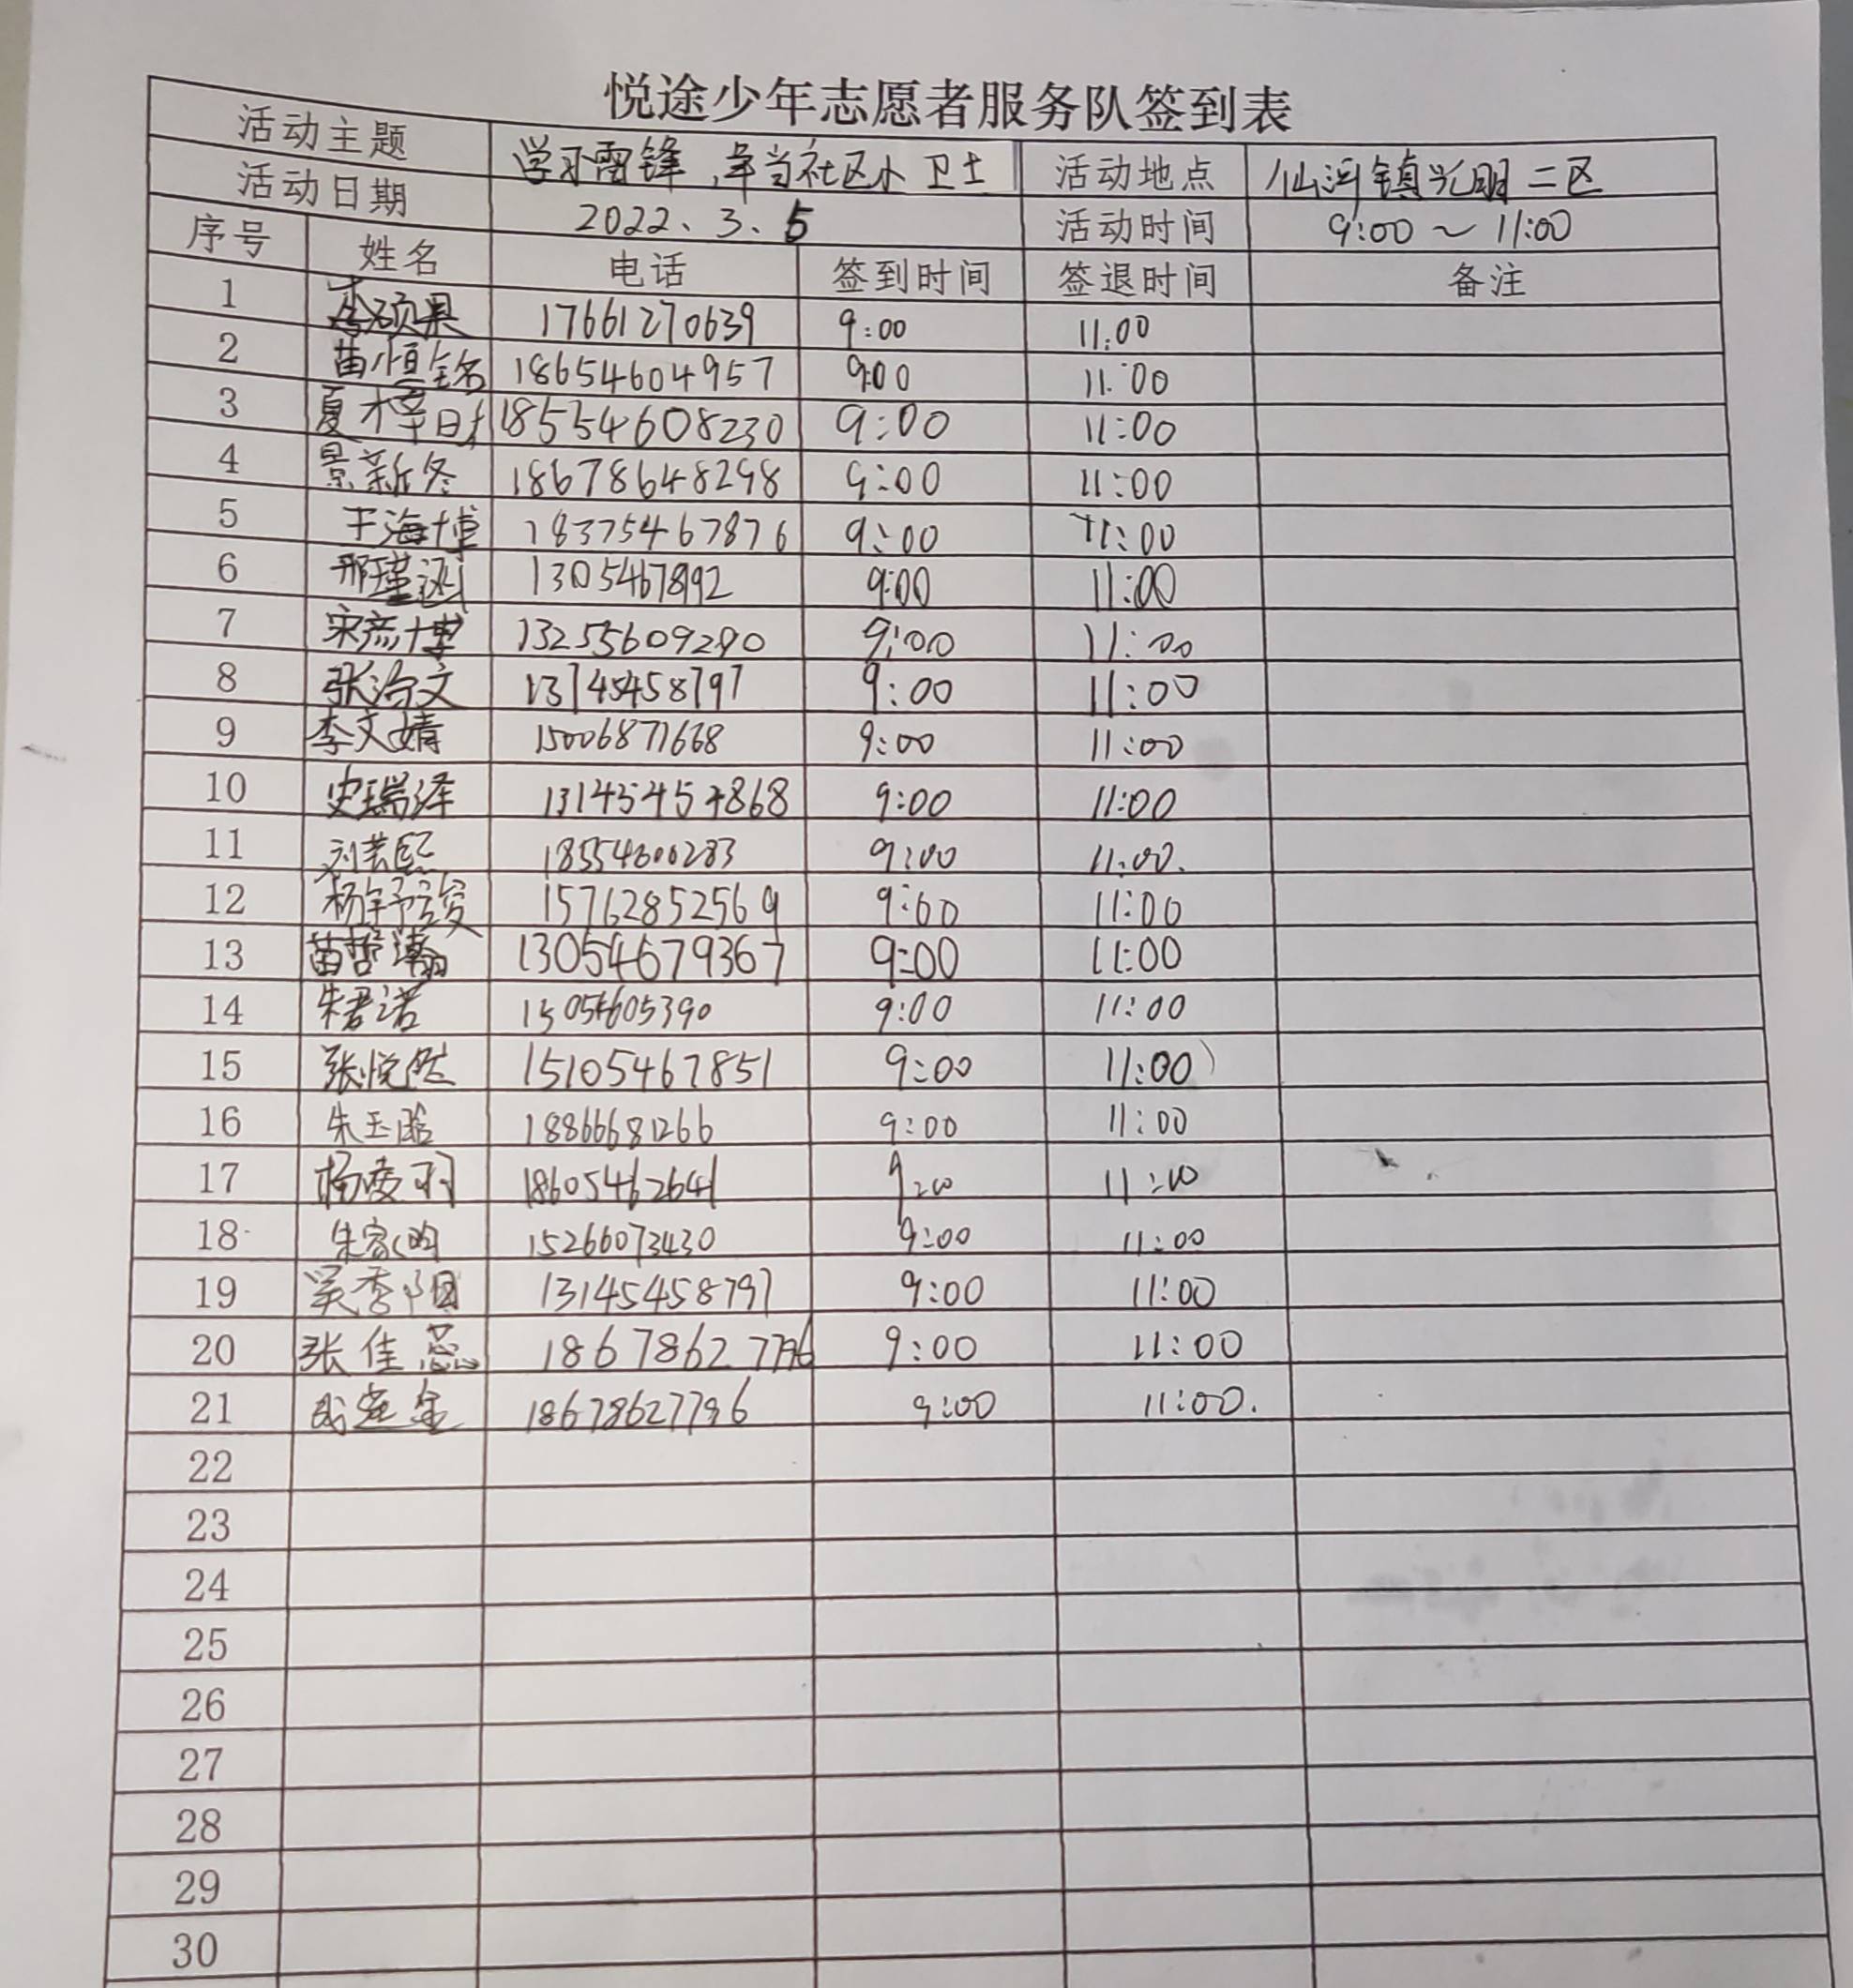 悦途少年志愿者服务队签到表
活动主题 学习雷锋,争当社区小卫士 活动地点 仙河镇光明二区
活动日期 2022、3、5 活动时间 9:00~11:00
序号 姓名 电话 签到时间 签退时间 备注
1 李硕果 17661270639 9:00 11:00
2 苗恒铭 18654604957 9:00 11:00
3 夏梓 18554608230 9:00 11:00
4 景新冬 18678648298 9:00 11:00
5 于海博 18375467876 9:00 11:00
6 邢瑾涵 1305467892 9:00 11:00
7 宋彦博 13255609290 9:00 11:00
8 张治文 9:00 11:00
9 李文婧 15006871668 9:00 11:00
10 史瑞泽 9:00 11:00
11 18554600283 9:00 11:00.
12 杨 15762852569 9:00 11:00
13 苗哲瀚 13054679367 9:00 11:00
14 朱君诺 9:00 11:00
15 张悦然 15105467851 9:00 11:00
16 朱玉晗 18866681266 9:00 11:00
17 杨凌羽 18605462641 9:00 11:00
18 朱家 15266073430 9:00 11:00
19 吴季阳 13145458797 9:00 11:00
20 张佳蕊 18678627796 9:00 11:00
21 18678627796 9:00 11:00.
22
23
24
25
26
27
28
29
30